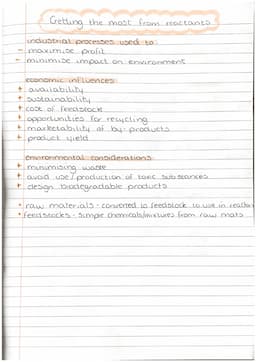 Getting the most from reactants
industrial processes used to:
- maximise profit
- minimise impact on environment
economic influences
+ availability
+ sustainability
+ cost of feedstock
+ opportunities for recycling
+ marketability of by-products
+ product yield
environmental considerations
+ minimising waste
+ avoid use/production of toxic substances
+ design biodegradable products
* raw materials - converted to feedstock to use in reaction
* feedstocks - simple chemicals/mixtures from raw mats